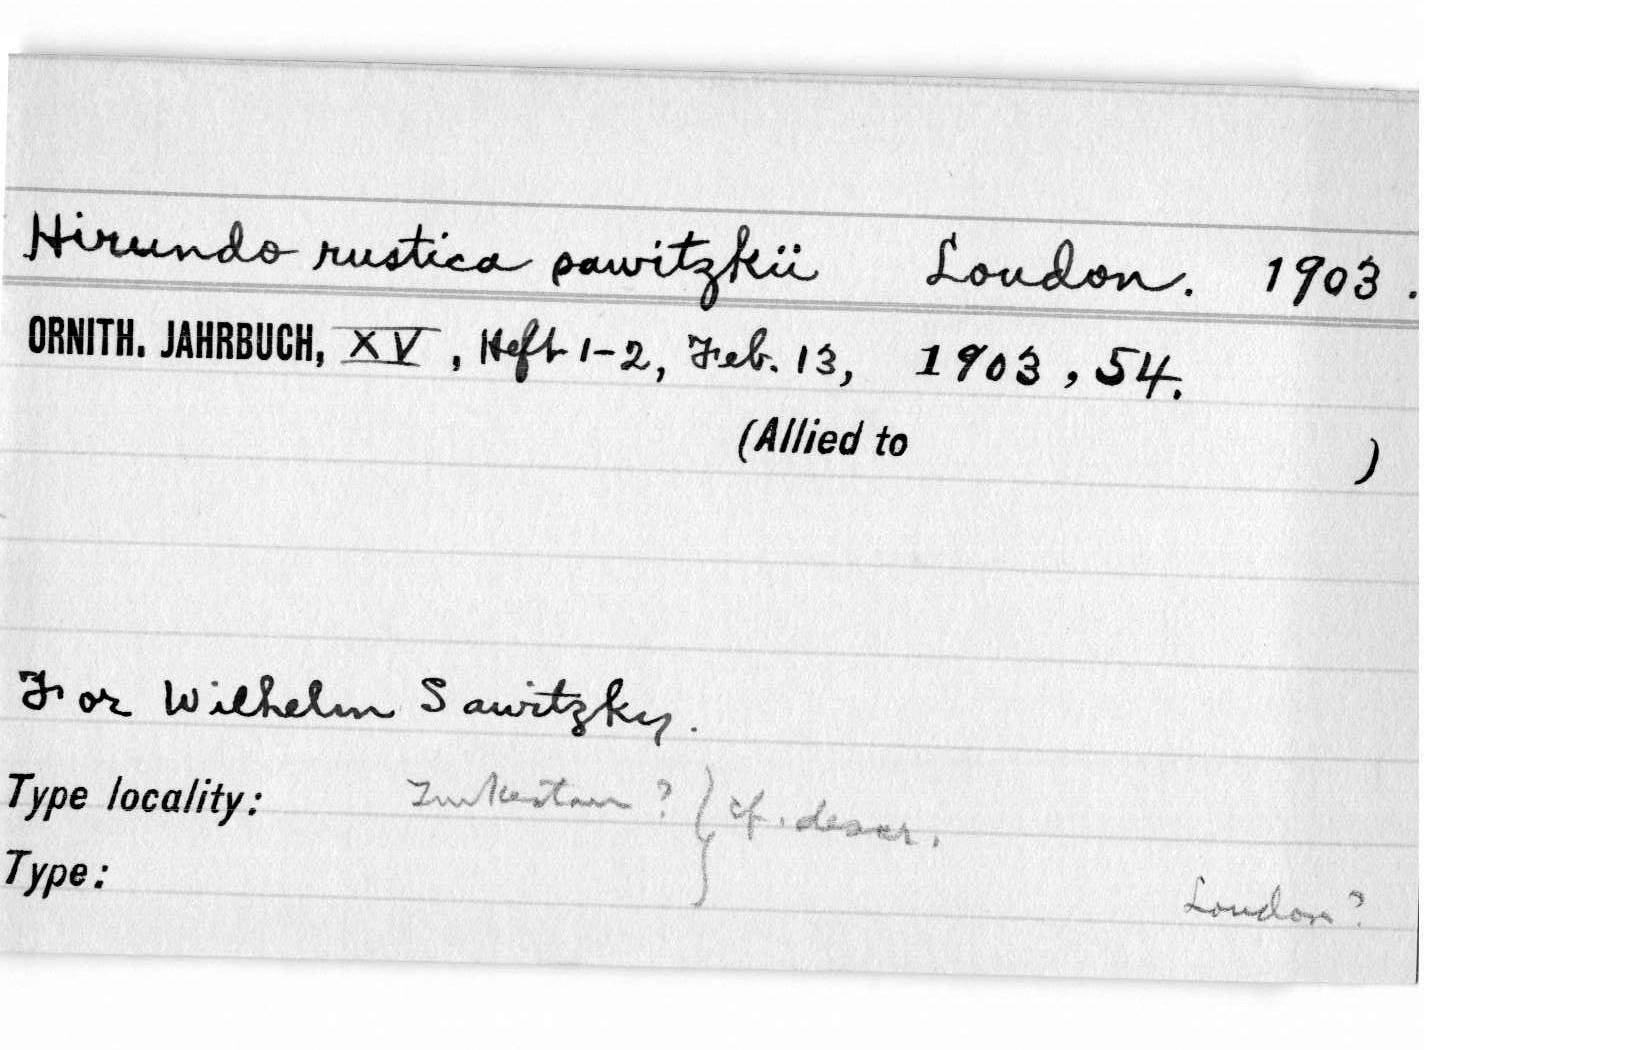 Hirundo rustica sawitzkii Loudon. 1903.
ORNITH. JAHRBUCH, XV, Heft 1-2, Feb. 13, 1903, 54.
(Allied to )
For Wilhelm Sawitzky.
Type locality: Turkestan ? } cf. descr.
Type:
Loudon?